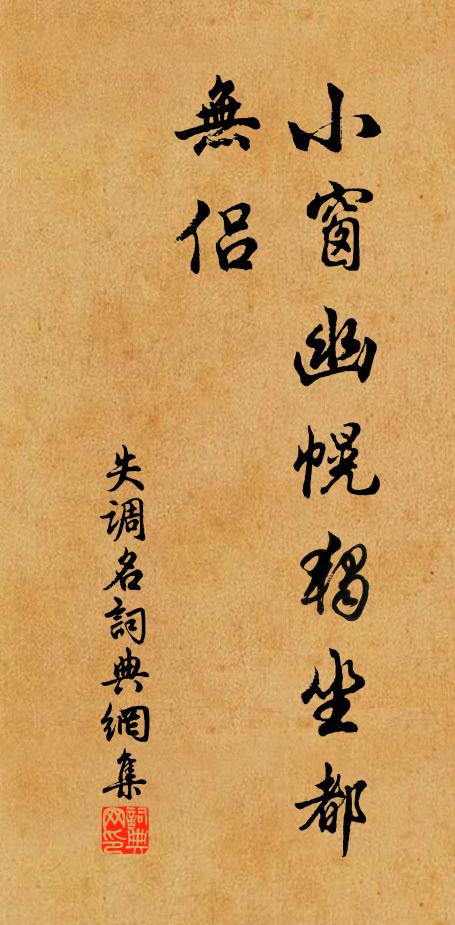 小窗幽幌獨坐都
無侶
失調名詞典網集
詞典网印